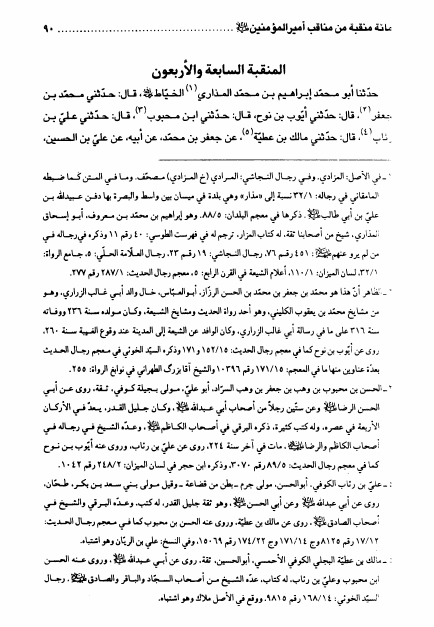 مائة منقبة من مناقب أمير المؤمنين ﷺ ................................ ٩٠
المنقبة السابعة والأربعون
حدّثنا أبو محمّد إبراهيم بن محمّد المذاري(١) الخيّاط ﷺ، قال: حدّثني محمّد بن
جعفر(٢)، قال: حدّثني أيّوب بن نوح، قال: حدّثني ابن محبوب(٣)، قال: حدّثني عليّ بن
رئاب(٤)، قال: حدّثني مالك بن عطيّة(٥)، عن جعفر بن محمّد، عن أبيه، عن عليّ بن الحسين،
١ـ في الأصل: المزادي. وفي رجال النجاشي: المرادي (خ المزادي) مصحّف، وما في المتن كما ضبطه
المامقاني في رجاله: ٣٢/١ نسبة إلى «مذار» وهي بلدة في ميسان بين واسط والبصرة بها دفن عبيدالله بن
عليّ بن أبي طالب ﷺ. ذكرها في معجم البلدان: ٨٨/٥. وهو إبراهيم بن محمّد بن معروف، أبو إسحاق
المذاري، شيخ من أصحابنا ثقة، له كتاب المزار، ترجم له في فهرست الطوسي: ٤٠ رقم ١١ وذكره في رجاله في
من لم يرو عنهم ﷺ: ٤٥١ رقم ٧٦، رجال النجاشي: ١٩ رقم ٢٣، رجال العلّامة الحلّي: ٥، جامع الرواة:
٣٢/١، لسان الميزان: ١١٠/١، أعلام الشيعة في القرن الرابع: ٥، معجم رجال الحديث: ٢٨٧/١ رقم ٢٧٧.
٢ـ الظاهر أنّ هذا هو محمّد بن جعفر بن محمّد بن الحسن الرزّاز، أبو العبّاس، خال والد أبي غالب الزراري، وهو
من مشايخ محمّد بن يعقوب الكليني، وهو أحد رواة الحديث ومشايخ الشيعة، وكان مولده سنة ٢٣٦ ووفاته
سنة ٣١٦ على ما في رسالة أبي غالب الزراري، وكان الوافد عن الشيعة إلى المدينة عند وقوع الغيبة سنة ٢٦٠،
روى عن أيّوب بن نوح كما في معجم رجال الحديث: ١٥٢/١٥ و ١٧١ وذكره السيّد الخوئي في معجم رجال الحديث
بعدّة عناوين منها ما في المعجم: ١٧١/١٥ رقم ١٠٣٩٦ والشيخ آقا بزرگ الطهراني في نوابغ الرواة: ٢٥٥.
٣ـ الحسن بن محبوب بن وهب بن جعفر بن وهب السرّاد، أبو عليّ، مولى بجيلة كوفي، ثقة، روى عن أبي
الحسن الرضا ﷺ وعن ستّين رجلاً من أصحاب أبي عبدالله ﷺ، وكان جليل القدر، يعدّ في الأركان
الأربعة في عصره، وله كتب كثيرة، ذكره البرقي في أصحاب الكاظم ﷺ، وعدّه الشيخ في رجاله في
أصحاب الكاظم والرضا ﷺ، مات في آخر سنة ٢٢٤، روى عن عليّ بن رئاب، وروى عنه أيّوب بن نوح
كما في معجم رجال الحديث: ٨٩/٥ رقم ٣٠٧٠، وذكره ابن حجر في لسان الميزان: ٢٤٨/٢ رقم ١٠٤٢.
٤ـ عليّ بن رئاب الكوفي، أبو الحسن، مولى جرم ـ بطن من قضاعة ـ وقيل مولى بني سعد بن بكر، طحّان،
روى عن أبي عبدالله ﷺ وعن أبي الحسن ﷺ، وهو ثقة جليل القدر، له كتب، وعدّه البرقي والشيخ في
أصحاب الصادق ﷺ، روى عن مالك بن عطيّة، وروى عنه الحسن بن محبوب كما في معجم رجال الحديث:
١٧/١٢ رقم ٨١٢٥ وج ١٧١/١٤ وج ١٧٤/٢٢ رقم ١٥٠٦٩، وفي النسخ: علي بن الريّان وهو اشتباه.
٥ـ مالك بن عطيّة البجلي الكوفي الأحمسي، أبو الحسين، ثقة، روى عن أبي عبدالله ﷺ، وروى عنه الحسن
ابن محبوب وعليّ بن رئاب، له كتاب، عدّه الشيخ من أصحاب السجّاد والباقر والصادق ﷺ. رجال
السيّد الخوئي: ١٦٨/١٤ رقم ٩٨١٥. ووقع في الأصل ملاك وهو اشتباه.